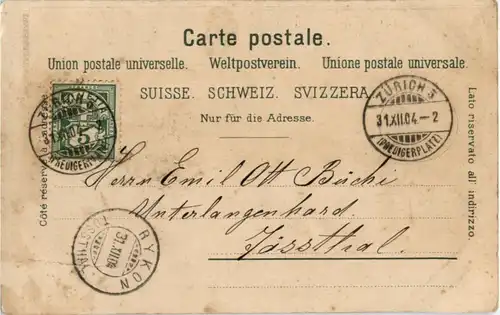 Carte postale.
Union postale universelle. Weltpostverein. Unione postale universale.
SUISSE. SCHWEIZ. SVIZZERA.
Nur für die Adresse.
ZÜRICH 3
31.XII.04-2
(PREDIGERPLATZ)
ZÜRICH 3
31.XII.04
5
(PREDIGERPLATZ)
Côté réservé à l'adresse.
Lato riservato all' indirizzo.
Herrn Emil Ott Büchi
Unterlangenhard
Tössthal.
RYKON
31.XII.04